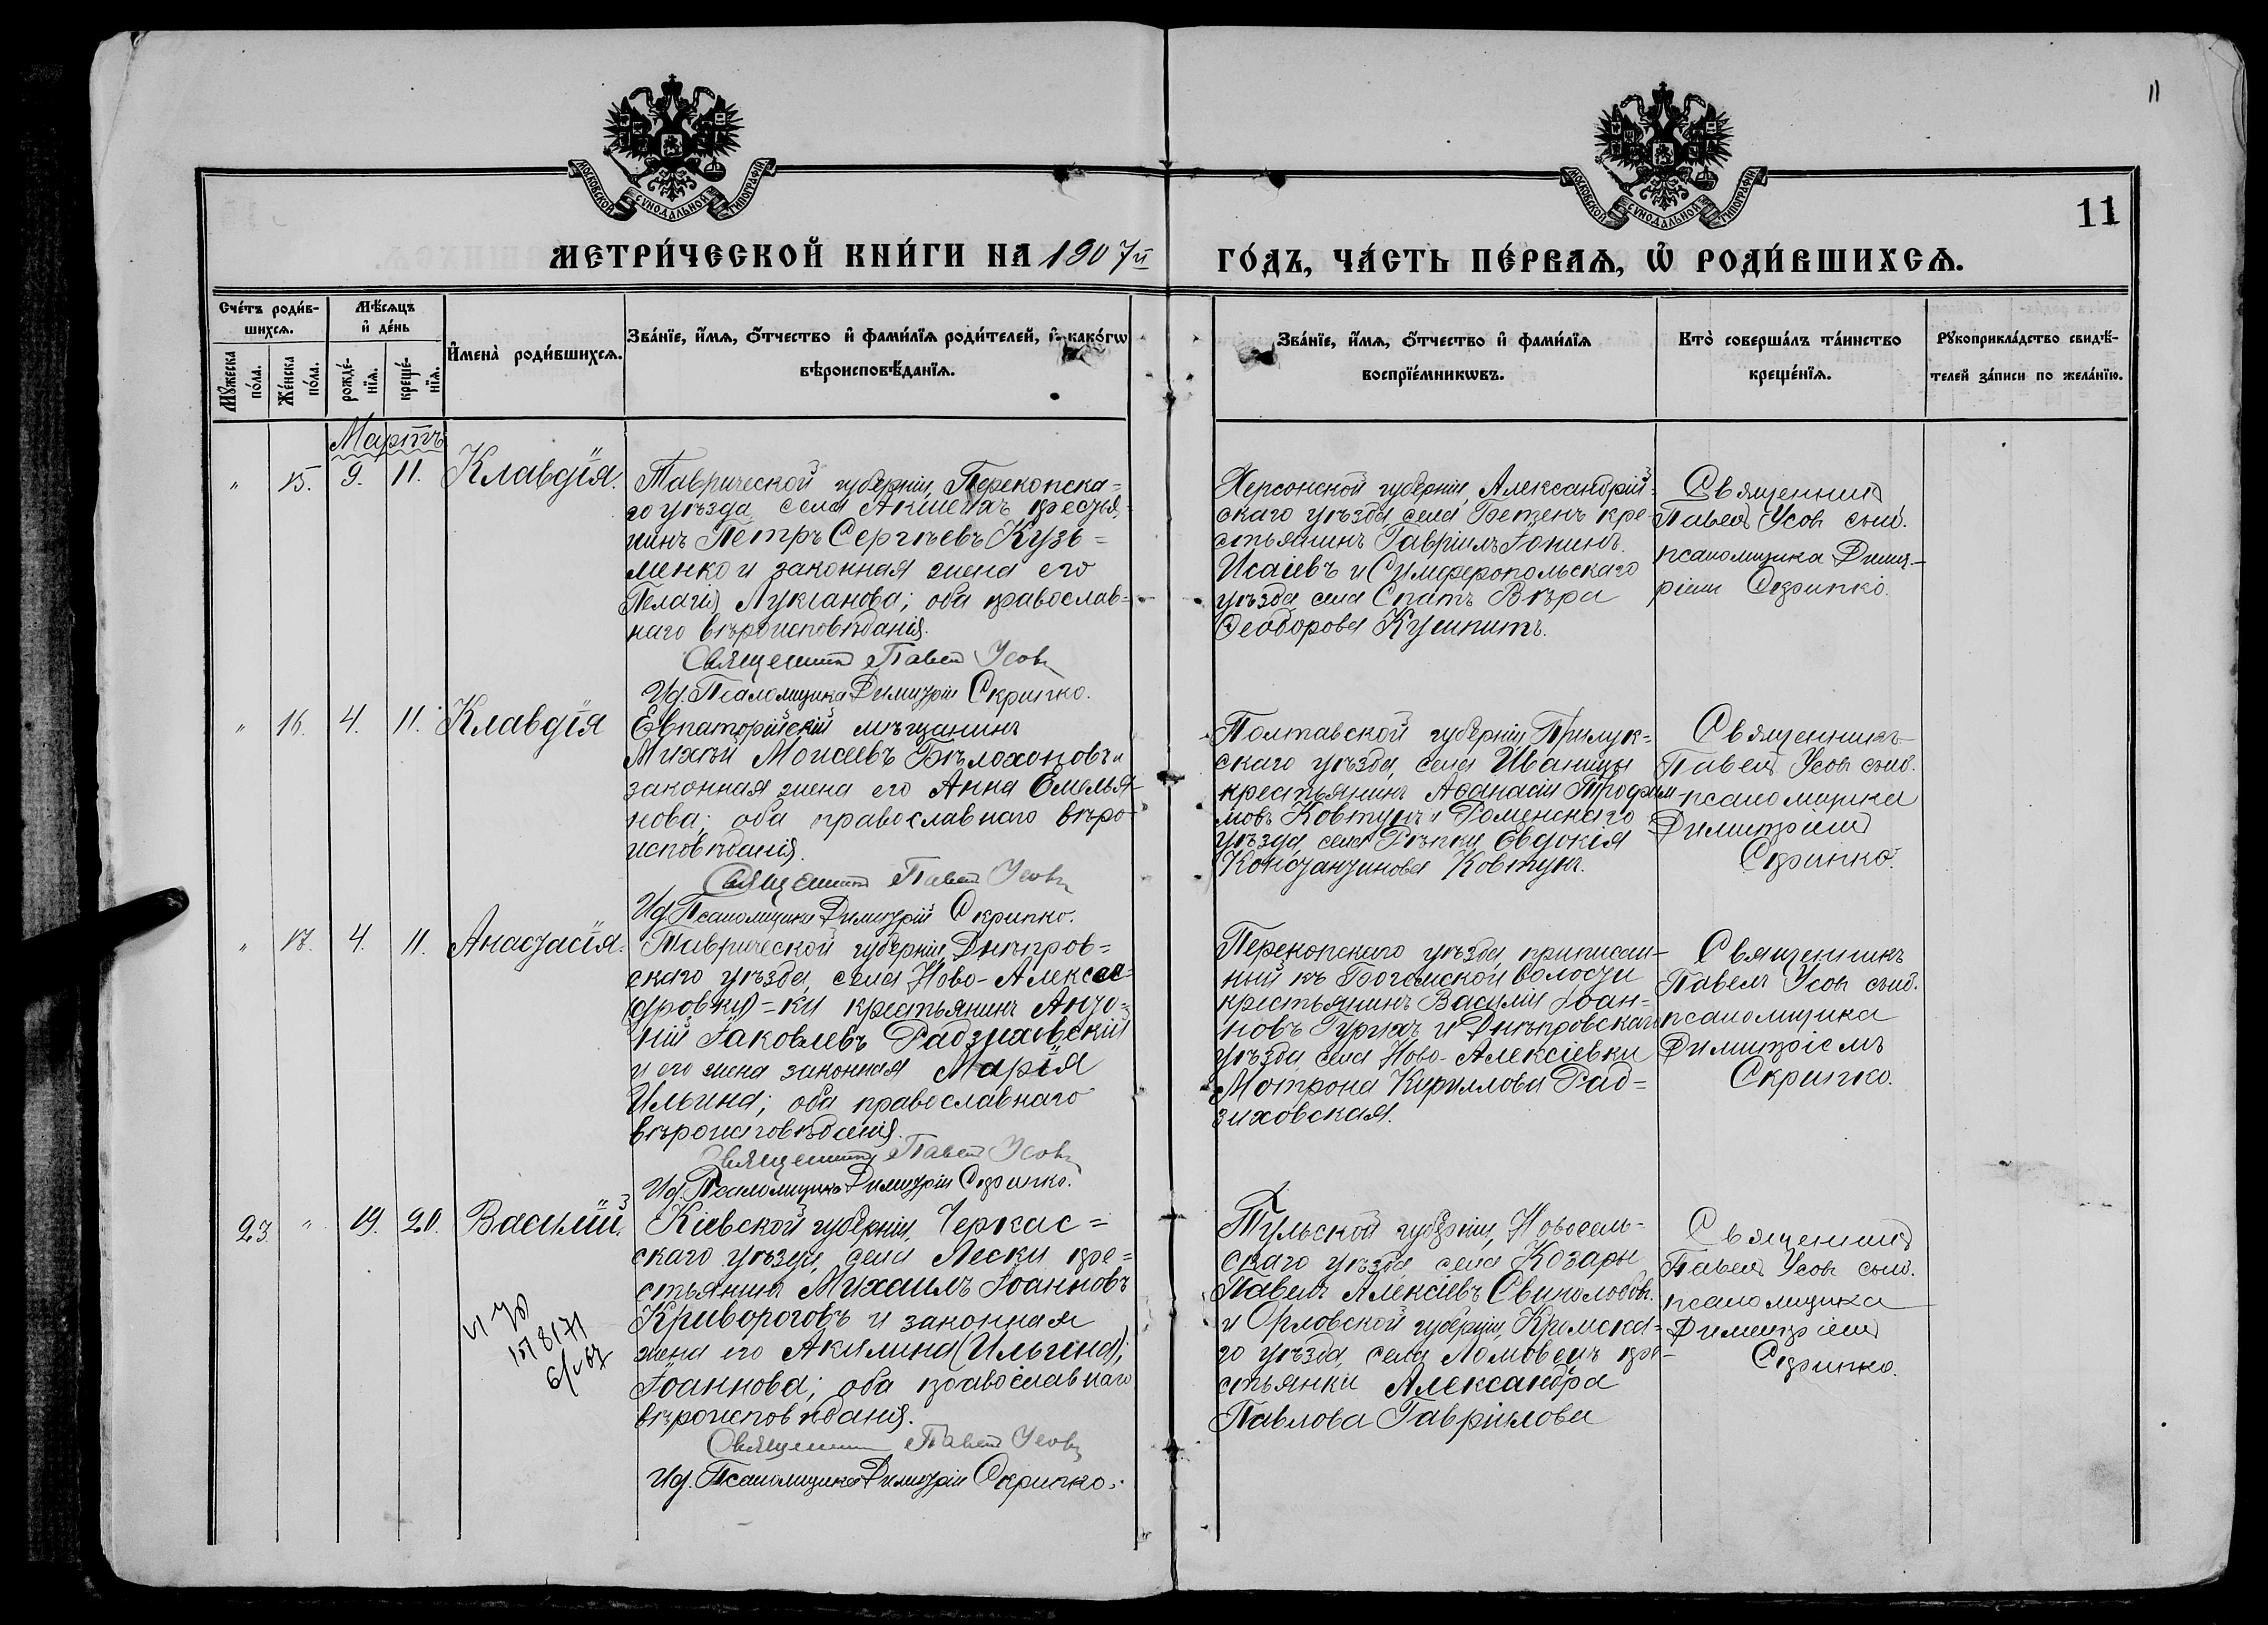 11
МОСКОВСКОЙ СУНОДАЛЬНОЙ ТИПОГРАФІИ
МОСКОВСКОЙ СУНОДАЛЬНОЙ ТИПОГРАФІИ
11
МЕТРИ́ЧЕСКОЙ КНИ́ГИ НА 1907й ГО́ДЪ, ЧА́СТЬ ПЕ́РВАѦ, Ѡ РОДИ́ВШИХСѦ.
Сче́тъ роди́в-
шихсѧ.
Мꙋ́жеска по́ла.
Же́нска по́ла.
Мѣ́сѧцъ
и де́нь
рожде́-
нїѧ.
креще́-
нїѧ.
Имена̀ роди́вшихсѧ.
Зва́нїе, и́мѧ, о́тчество и фами́лїѧ роди́телей, и како́гѡ
вѣроисповѣ́данїѧ.
Зва́нїе, и́мѧ, о́тчество и фами́лїѧ
воспрїе́мникѡвъ.
Кто̀ соверша́лъ та́инство
креще́нїѧ.
Рꙋкоприкла́дство свидѣ́-
телей за́писи по жела́нїю.
Мартъ
" 15. 9. 11. Клавдія.
Таврической губерніи, Перекопска=
го уѣзда, села Акшеихъ крестья
нинъ Петръ Сергѣевъ Кузь=
менко и законная жена его
Пелагія Лукіанова; оба православ=
наго вѣроисповѣданія.
Священникъ Павелъ Усовъ
Ид. Псаломщика Димитрій Скрипко.
Херсонской губерніи, Александрій=
скаго уѣзда, села Бетенъ кре-
стьянинъ Гавріилъ
Исаіевъ и Симферопольскаго
уѣзда села Спатъ Вѣра
Ѳеодорова
Священникъ
Павелъ Усовъ съ ид.
псаломщика Димит-
ріемъ Скрипко.
" 16. 4. 11. Клавдія
Евпаторійскій мѣщанинъ
Михаилъ Моисеевъ Бѣлоконовъ и
законная жена его Анна Емелья-
нова; оба православнаго вѣро-
исповѣданія.
Священникъ Павелъ Усовъ
Ид. Псаломщика Димитрій Скрипко.
Полтавской губерніи Прилук=
скаго уѣзда, села Иваницы
крестьянинъ Аѳанасій Трофи
мовъ Ковтунъ и Роменскаго
уѣзда села Рѣпки Евдокія
Константинова Ковтунъ.
Священникъ
Павелъ Усовъ съ ид.
псаломщика
Димитріемъ
Скрипко.
" 17. 4. 11. Анастасія.
Таврической губерніи, Днѣпров=
скаго уѣзда, села Ново-Алексан
(дровки)=ки крестьянинъ Анто=
ній Іаковлевъ Радзиховскій
и его жена законная Марія
Ильина; оба православнаго
вѣроисповѣданія.
Священникъ Павелъ Усовъ
Ид. Псаломщика Димитрій Скрипко.
Перекопскаго уѣзда, приписан-
ный къ Богемской волости
крестьянинъ Василій Іоан=
новъ и Днѣпровскаго
уѣзда, села Ново-Алексіевки
Мотрона Кириллова Рад=
зиховская.
Священникъ
Павелъ Усовъ съ ид.
псаломщика
Димитріемъ
Скрипко.
23 " 19. 20. Василій.
Кіевской губерніи, Черкас=
скаго уѣзда, села Лески кре=
стьянинъ Михаилъ Іоанновъ
Кривороговъ и законная
жена его Акилина (Ильина);
Іоаннова; оба православнаго
вѣроисповѣданія.
Священникъ Павелъ Усовъ
Ид. Псаломщика Димитрій Скрипко.
Тульской губерніи, Новосель-
скаго уѣзда села Козары
Павелъ Алексіевъ Свинолобовъ
и Орловской губерніи, Кромска=
го уѣзда, села Ломовецъ кре-
стьянки Александра
Павлова Гаврилова
Священникъ
Павелъ Усовъ съ ид.
псаломщика
Димитріемъ
Скрипко.